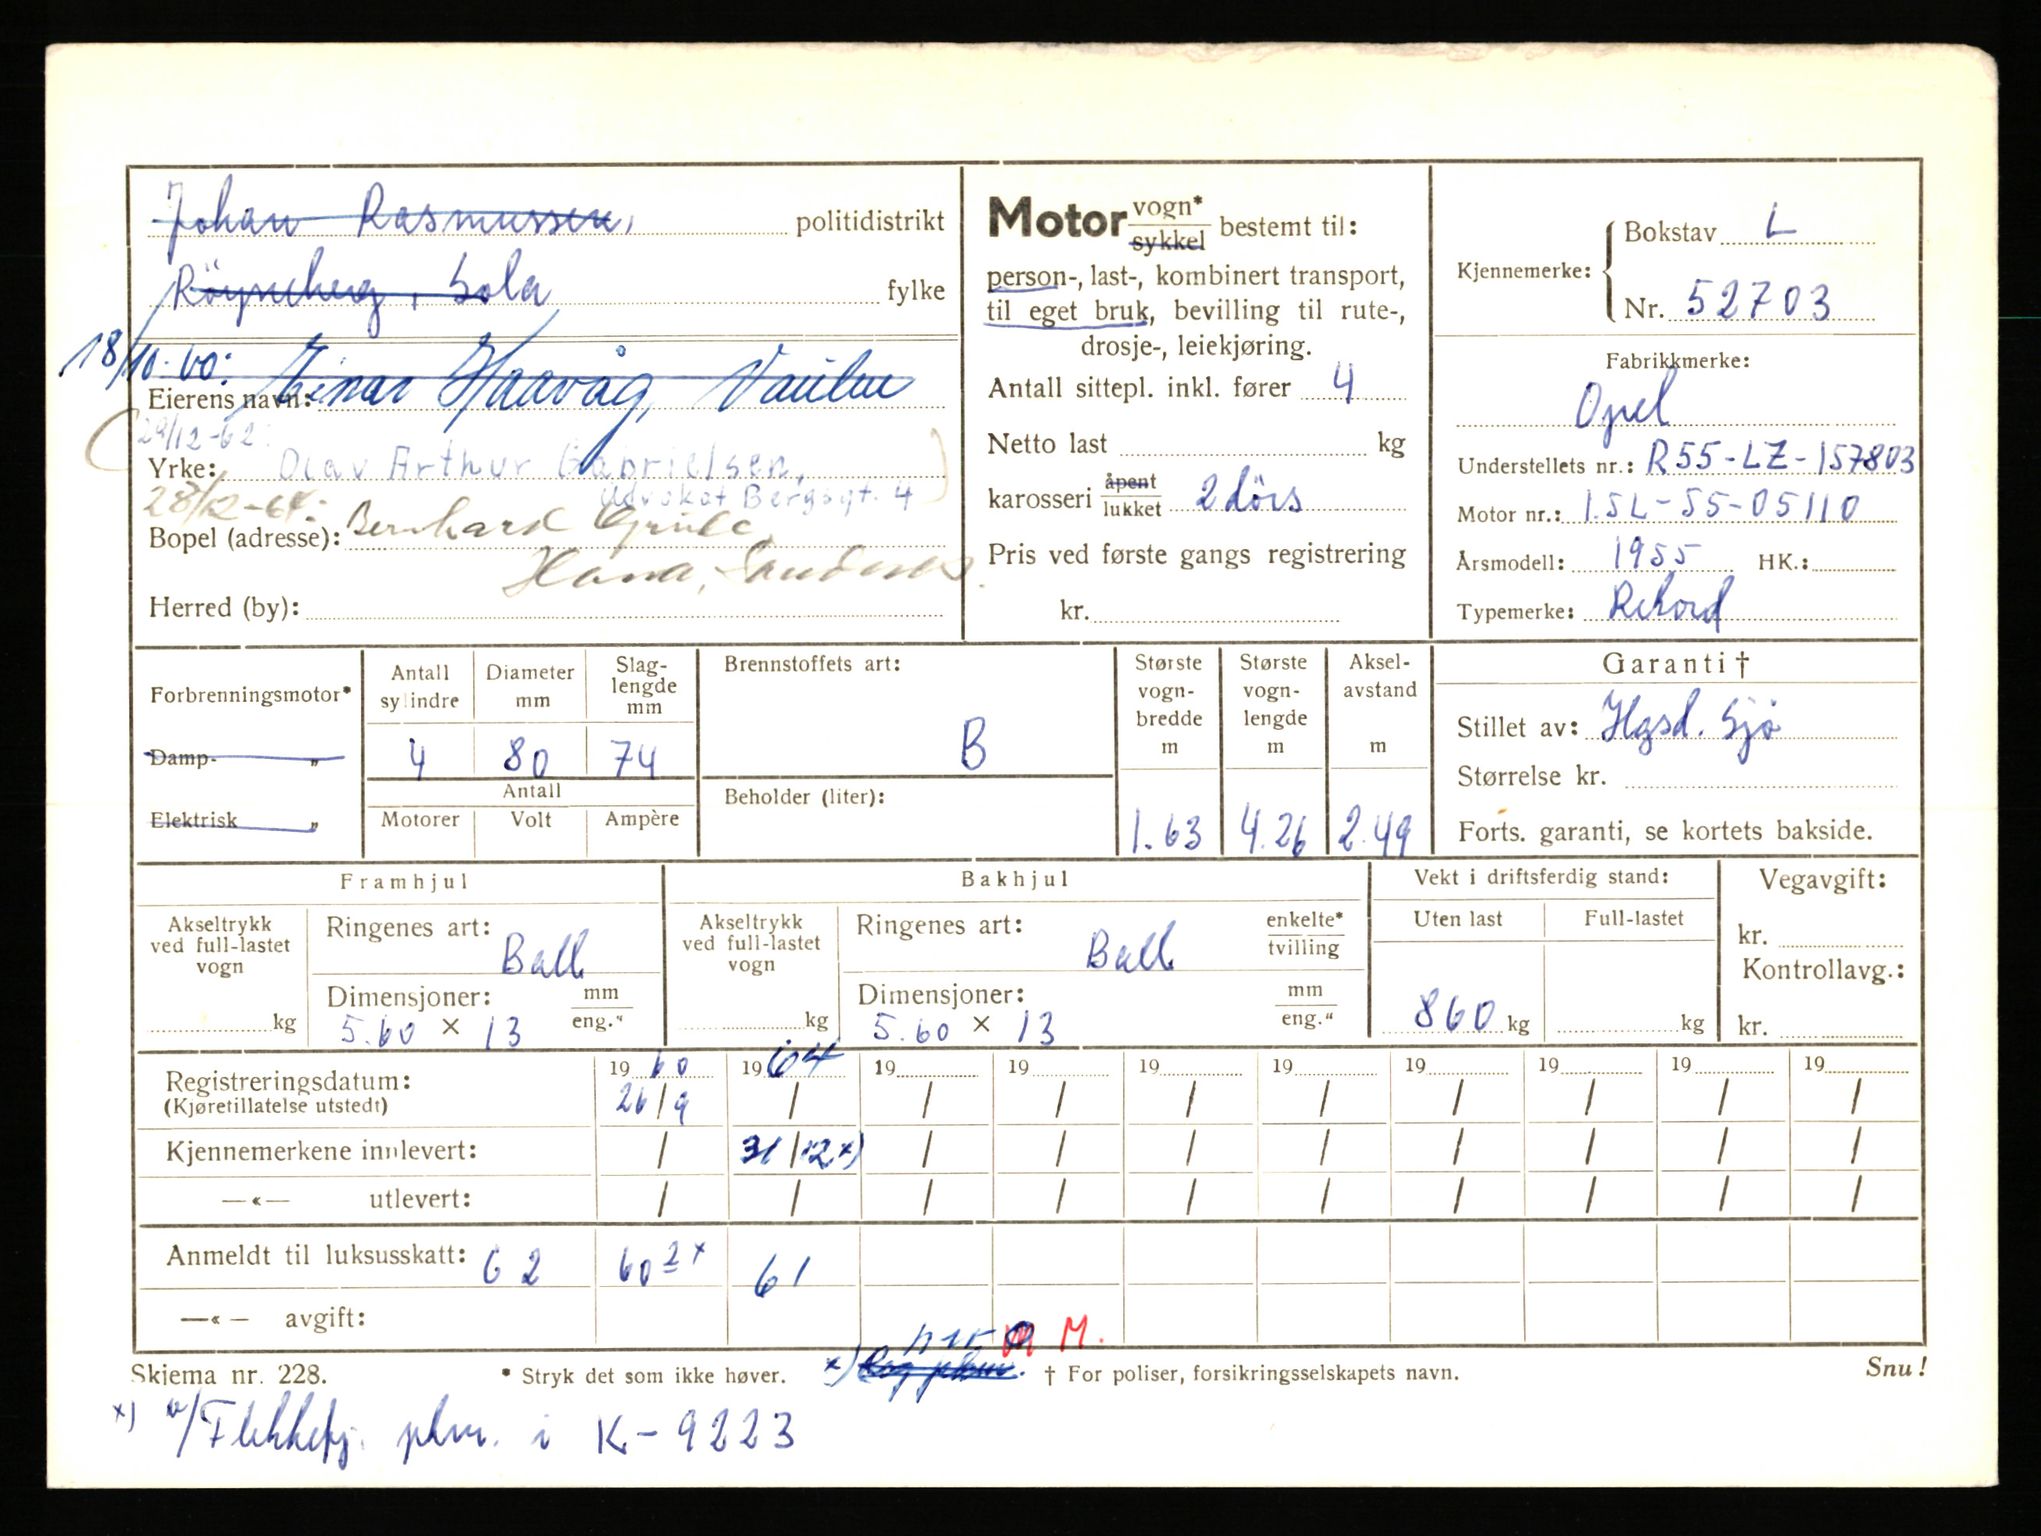 Johan Rasmussen, politidistrikt
Røyneberg, Sola fylke
18/10-60: Einar Haavåg, Vaulen
Eierens navn:
29/12-62:
Yrke: Olav Arthur Gabrielsen,
Advokat Bergsgt. 4
28/12-64:
Bopel (adresse): Bernhard
Hana, Sandnes.
Herred (by):
Motor vogn* sykkel bestemt til:
person-, last-, kombinert transport,
til eget bruk, bevilling til rute-,
drosje-, leiekjøring.
Antall sittepl. inkl. fører 4
Netto last kg
karosseri åpent lukket 2 dörs
Pris ved første gangs registrering
kr.
Kjennemerke: Bokstav L
Nr. 52703
Fabrikkmerke:
Opel
Understellets nr.: R55-LZ-157803
Motor nr.: 1.5L-55-05110
Årsmodell: 1955 HK.:
Typemerke: Rekord
Forbrenningsmotor*
Damp- „
Elektrisk „
Antall sylindre
Diameter mm
Slag-lengde mm
4 80 74
Antall
Motorer Volt Ampère
Brennstoffets art:
B
Beholder (liter):
Største vogn-bredde m
1.63
Største vogn-lengde m
4.26
Aksel-avstand m
2.49
Garanti †
Stillet av: Hgsd. Sjö
Størrelse kr.
Forts. garanti, se kortets bakside.
Framhjul
Akseltrykk ved full-lastet vogn
kg
Ringenes art: Ball
Dimensjoner: mm eng."
5.60 × 13
Bakhjul
Akseltrykk ved full-lastet vogn
kg
Ringenes art: Ball enkelte* tvilling
Dimensjoner: mm eng."
5.60 × 13
Vekt i driftsferdig stand:
Uten last Full-lastet
860 kg kg
Vegavgift:
kr.
Kontrollavg.:
kr.
1960 1964 19 19 19 19 19 19 19 19
Registreringsdatum: 26/9 / / / / / / / / /
(Kjøretillatelse utstedt)
Kjennemerkene innlevert: / 31/12 x) / / / / / / / /
—«— utlevert: / / / / / / / / / /
Anmeldt til luksusskatt: 62 60 2 x 61
—«— avgift:
M.
Skjema nr. 228. * Stryk det som ikke høver. x) † For poliser, forsikringsselskapets navn. Snu!
x) v/Flekkefj. pkm. i K-9223